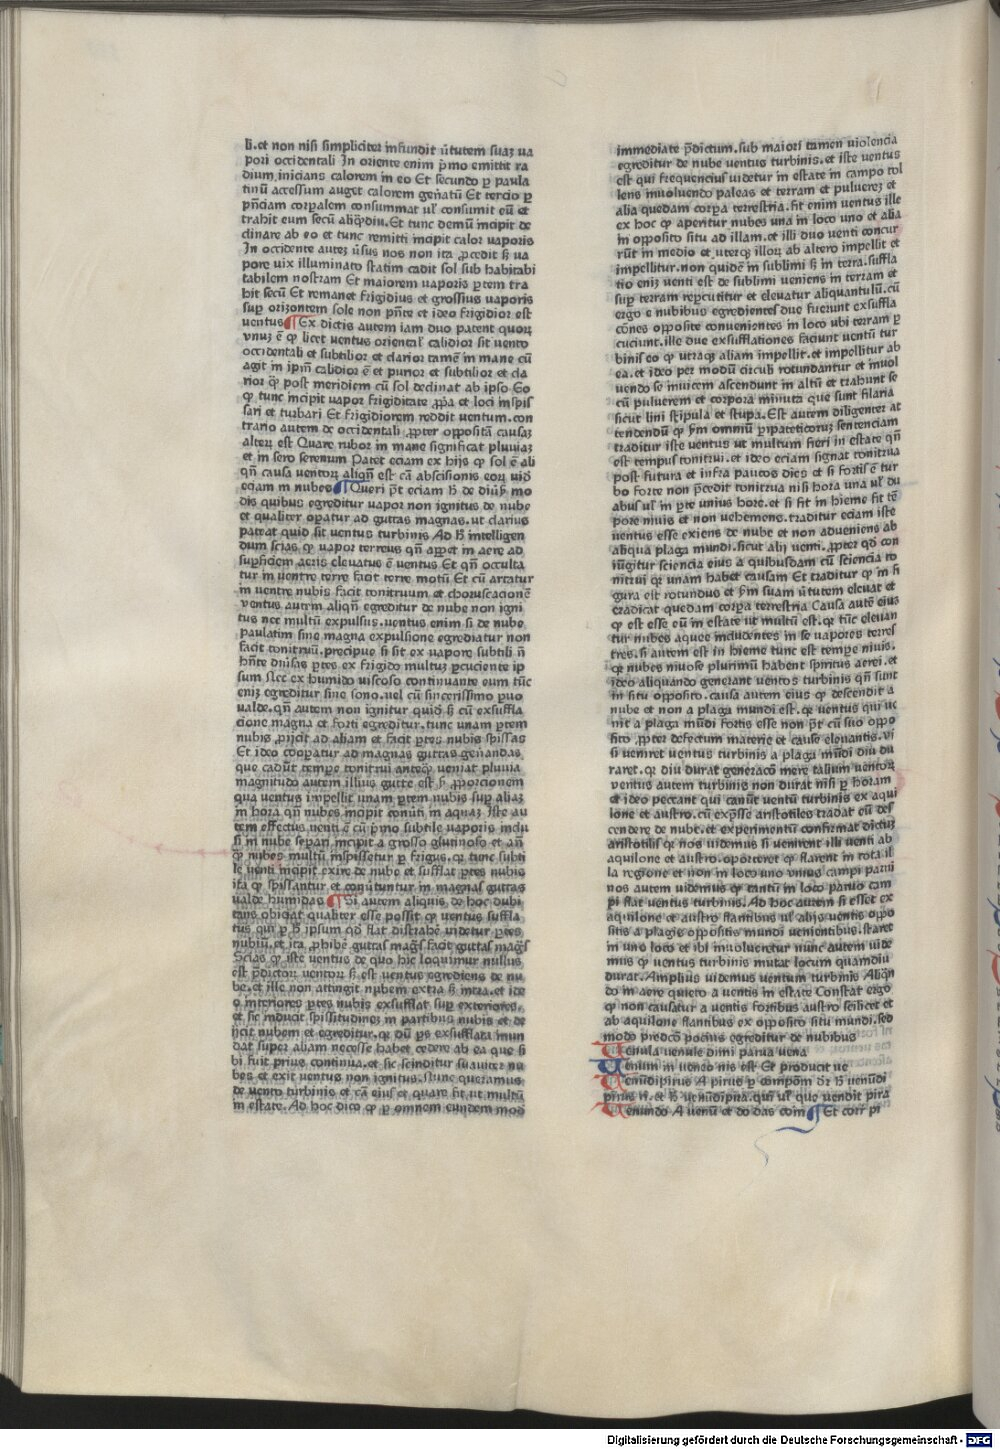 li.et non nisi simpliciter infundit ũtutem suaʒ ua
pori occidentali In oriente enim p̃mo emittit ra
dium.inicians calorem in eo Et secundo ꝑ paula
tinũ accessum auget calorem geñatũ Et tercio ꝑ
p̃nciam corꝑalem consummat ulʼ consumit eũ et
trahit eum secũ aliq̃diu.Et tunc demũ incipit de
clinare ab eo et tunc remitti incipit calor uaporis
In occidente auteʒ ũsus nos non ita ꝓcedit sʒ ua
pore uix illuminato statim cadit sol sub habitabi
tabilem nostram Et maiorem uaporis ꝑtem tra
hit secũ Et remanet frigidius et grossius uaporis
suꝑ oriʒontem sole non p̃nte et ideo frigidior est
uentus ¶ Ex dictis autem iam duo patent quoꝝ
vnuʒ ē ꝙ licet uentus orientalʼ calidior sit uento
occidentali et subtilior et clarior tamē in mane cũ
agit in ip̃m calidior ē et purior et subtilior et cla
rior ꝙ̃ post meridiem cũ sol declinat ab ipso Eo
ꝙ tunc incipit uapor frigiditate ꝓp̃a et loci inspis
sari et turbari Et frigidiorem reddit uentum.con
trario autem de occidentali ꝓpter oppositã causaʒ
alteꝝ est Quare rubor in mane significat pluuiaʒ
et in sero serenum Patet eciam ex hijs ꝙ sol ē ali
qñ causa uentoꝝ aliqñ est cã abscisionis eoꝝ uid
eciam in nubeo ¶ Queri p̃t eciam h̃ de diũs̃ mo
dis quibus egreditur uapor non ignitus de nube
et qualiter oꝑatur ad guttas magnas.ut clarius
pateat quid sit uentus turbinis Ad h̃ intelligen
dum scias ꝙ uapor terreus qñ apꝑet in aere ad
suꝑficiem aeris eleuatus ē uentus Et qñ occulta
tur in uentre terre facit terre motũ Et cũ artatur
in uentre nubis facit tonitruum et choruscacionē
ventus autem aliqñ egreditur de nube non igni
tus nec multũ expulsus.uentus enim si de nube
paulatim sine magna expulsione egrediatur non
facit tonitruũ.precipue si sit ex uapore subtili ñ
hñte diũsas ꝑtes ex frigido multuʒ ꝑcuciente ip
sum nec ex humido uiscoso continuante eum tũc
eniʒ egreditur sine sono.uel cũ sincerissimo ꝑuo
valde.qñ autem non ignitur quid sʒ cũ exsuffla
cione magna et forti egreditur.tunc unam ꝑtem
nubis ꝓijcit ad aliam et facit ꝑtes nubis spissas
Et ideo cooꝑatur ad magnas guttas geñandas
que cadũt tempe tonitrui anteꝙ̃ ueniat pluuia
magnitudo autem illius gutte est s̃ ꝓporcionem
qua uentus impellit unam ꝑtem nubis suꝑ aliaʒ
in hora qñ nubes incipit conũti in aquaʒ Iste au
tem effectus uenti ē cũ p̃mo subtile uaporis inclu
si in nube seꝑari incipit a grosso glutinoso et añ
ꝙ̃ nubes multũ inspissetur ꝑ frigus.qꝛ tunc subti
le uenti incipit exire de nube et sufflat ꝑtes nubis
ita ꝙ spissantur et conũtuntur in magnas guttas
valde humidas ¶ Si autem aliquis de hoc dubi
tans obiciat qualiter esse possit ꝙ uentus suffla
tus qui ꝑ h̃ ipsum qd̃ flat distrahē uidetur ꝑtes
nubiũ.et ita ꝓhibē guttas mag̃s facit guttas mag̃s
Scias ꝙ iste uentus de quo hic loquimur nullus
est p̃dictoꝝ uentoꝝ sʒ est uentus egrediens de nu
be.et ille non attingit nubem extra sʒ intra.et ide
o interiores ꝑtes nubis exsufflat suꝑ exteriores.
et sic inducit spissitudineʒ in partibus nubis et de
icit nubem et egreditur.qꝛ dũ ꝑs exsufflata inun
dat super aliam necesse habet cedere ab ea que si
bi fuit prius continua.et sic scinditur suauiter nu
bes et exit uentus non ignitus.Nunc queramus
de uento turbinis et cã eius et quare fit ut multũ
in estate.Ad hoc dico ꝙ ꝑ omnem eundem mod
immediate p̃dictum.sub maiori tamen uiolencia
egreditur de nube uentus turbinis.et iste uentus
est qui frequencius uidetur in estate in campo tol
lens inuoluendo paleas et terram et puluereʒ et
alia quedam corꝑa terrestria.fit enim uentus ille
ex hoc ꝙ aperitur nubes una in loco uno et alia
in opposito situ ad illam.et illi duo uenti concur
rũt in medio et uterqʒ illoꝝ ab altero impellit et
impellitur.non quidē in sublimi sʒ in terra.suffla
tio eniʒ uenti est de sublimi ueniens in terram et
suꝑ terram reꝑcutitur et eleuatur aliquantulũ.cũ
ergo e nubibus egredientes due fuerunt exsuffla
cōnes opposite conuenientes in loco ubi terram ꝑ
cuciunt.ille due exsufflationes faciunt uentũ tur
binis eo ꝙ utraqʒ aliam impellit.et impellitur ab
ea.et ideo per modũ circuli rotundantur et inuol
uendo se inuicem ascendunt in altũ et trahunt se
cũ puluerem et corpora minuta que sunt filaria
sicut lini stipula et stupa.Est autem diligenter at
tendendũ ꝙ s̃m omniũ ꝑipateticoruʒ sentenciam
traditur iste uentus ut multum fieri in estate qñ
est tempus tonitrui.et ideo eciam signat tonitrua
post futura et infra paucos dies et si fortis ē tur
bo forte non p̃cedit tonitrua nisi hora una ulʼ du
abus ulʼ in ꝑte unius hore.et si fit in hieme fit tē
pore niuis et non uehemens.traditur eciam iste
uentus esse exiens de nube et non adueniens ab
aliqua plaga mundi.sicut alij uenti.ꝓpter qd̃ con
iũgitur sciencia eius a quibusdam cũ sciencia to
nitrui qꝛ unam habet causam Et traditur ꝙ in fi
gura est rotundus et s̃m suam ũtutem eleuat et
eradicat quedam corꝑa terrestria Causa autē eius
ꝙ est esse eũ in estate ut multũ est.qꝛ tũc eleuan
tur nubes aquee includentes in se uapores terres
tres.si autem est in hieme tunc est tempe niuis.
qꝛ nubes niuose plurimũ habent spiritus aerei.et
ideo aliquando generant uentos turbinis qñ sunt
in situ opposito.causa autem eius ꝙ descendit a
nube et non a plaga mundi est.qꝛ uentus qui ue
nit a plaga mũdi fortis esse non p̃t cũ suo oppo
sito ꝓpter defectum materie et cause eleuantis.vi
si ueniret uentus turbinis a plaga mũdi diu du
raret.qꝛ diu durat generacō mere talium uentoꝝ
ventus autem turbinis non durat nisi ꝑ horam
et ideo peccant qui canũt uentũ turbinis ex aqui
lone et austro.cũ exp̃sse aristotiles tradat eũ des
cendere de nube.et experimentũ confirmat dictuʒ
aristotilis qꝛ nos uidemus si uenirent illi uenti ab
aquilone et austro.oporteret ꝙ flarent in tota il
la regione et non in loco uno vnius campi parui
nos autem uidemus ꝙ tantũ in loco paruo cam
pi flat uentus turbinis.Ad hoc autem si esset ex
aquilone et austro flantibus ulʼ alijs uentis oppo
sitis a plagis oppositis mundi uenientibus.staret
in uno loco et ibi inuolueretur nunc autem uide
mus ꝙ uentus turbinis mutat locum quamdiu
durat.Amplius uidemus uentum turbinis Aliqñ
do in aere quieto a uentis in estate Constat ergo
ꝙ non causatur a uentis fortibus austro scilicet et
ab aquilone flantibus ex opposito situ mundi.sed
modo predcō pocius egreditur de nubibus
Uenula uenule dimi parua uena
Uenum in ueneo nis est Et producit ue
Uenũdipirus A pirus ꝑ compōm dr̃ h̃ venũdi
pirus ri.et h̃ venũdipira.qui ulʼ que vendit pira
Uenundo A venũ et do das com ¶ Et corr pi
Digitalisierung gefördert durch die Deutsche Forschungsgemeinschaft - DFG